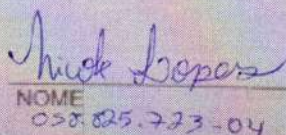 Nicole Lopes
NOME
058.825.723-04